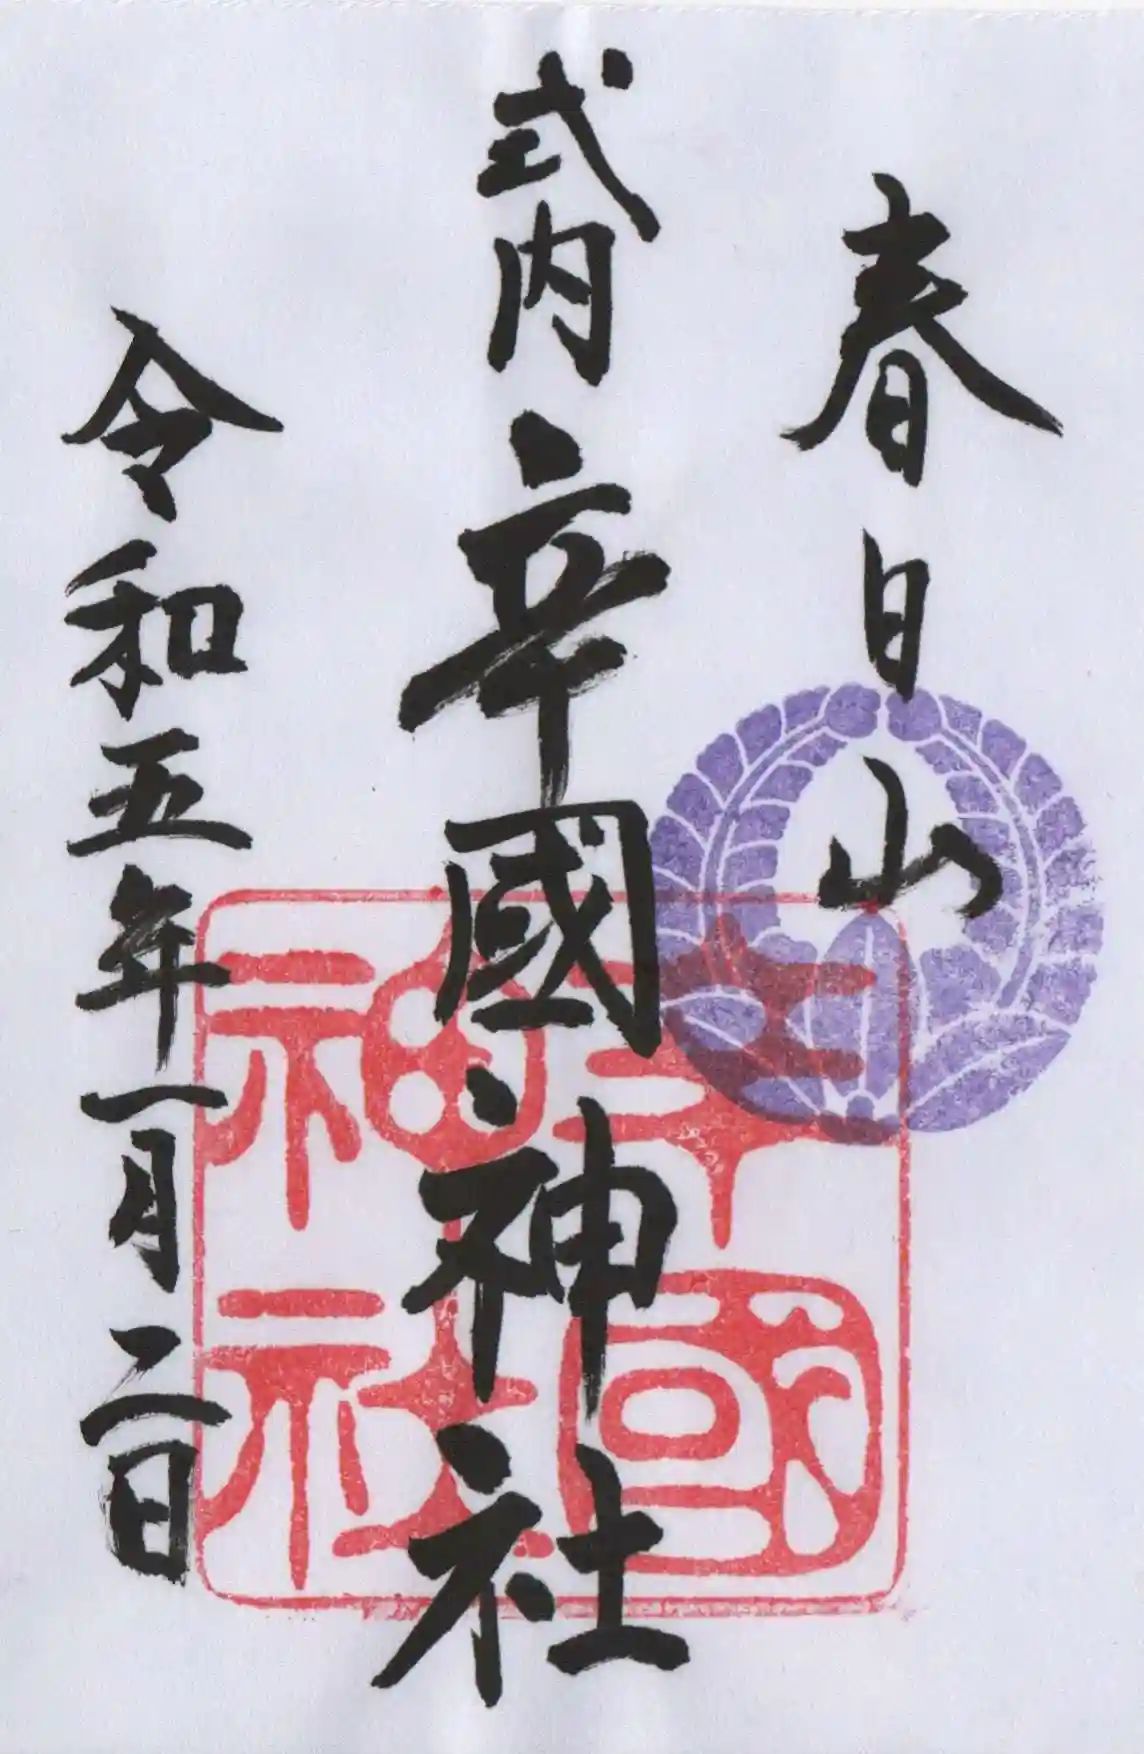 春日山
式内辛國神社
令和五年一月二日
辛國神社